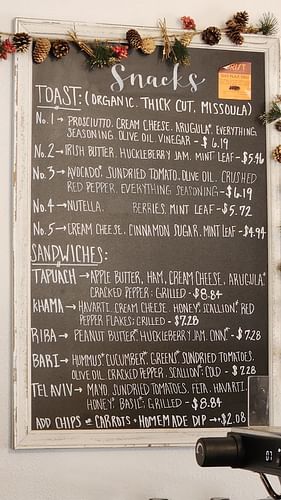 Snacks
TOAST: (ORGANIC, THICK CUT, MISSOULA)
No. 1 → PROSCIUTTO, CREAM CHEESE, ARUGULA*, EVERYTHING
SEASONING, OLIVE OIL, VINEGAR - $6.19
No. 2 → IRISH BUTTER, HUCKLEBERRY JAM, MINT LEAF - $5.46
No. 3 → AVOCADO*, SUNDRIED TOMATO, OLIVE OIL, CRUSHED
RED PEPPER, EVERYTHING SEASONING - $6.19
No. 4 → NUTELLA, BERRIES, MINT LEAF - $5.72
No. 5 → CREAM CHEESE, CINNAMON SUGAR, MINT LEAF - $4.94
SANDWICHES:
TAPUACH → APPLE BUTTER, HAM, CREAM CHEESE, ARUGULA*
CRACKED PEPPER; GRILLED - $8.84
KHAMA → HAVARTI, CREAM CHEESE, HONEY*, SCALLION*, RED
PEPPER FLAKES; GRILLED - $7.28
RIBA → PEANUT BUTTER*, HUCKLEBERRY JAM, CINN* - $7.28
BARI → HUMMUS*, CUCUMBER*, GREENS*, SUNDRIED TOMATOES,
OLIVE OIL, CRACKED PEPPER, SCALLION*; COLD - $7.28
TEL AVIV → MAYO, SUNDRIED TOMATOES, FETA, HAVARTI,
HONEY*, BASIL*; GRILLED - $8.84
ADD CHIPS or CARROTS + HOMEMADE DIP → $2.08